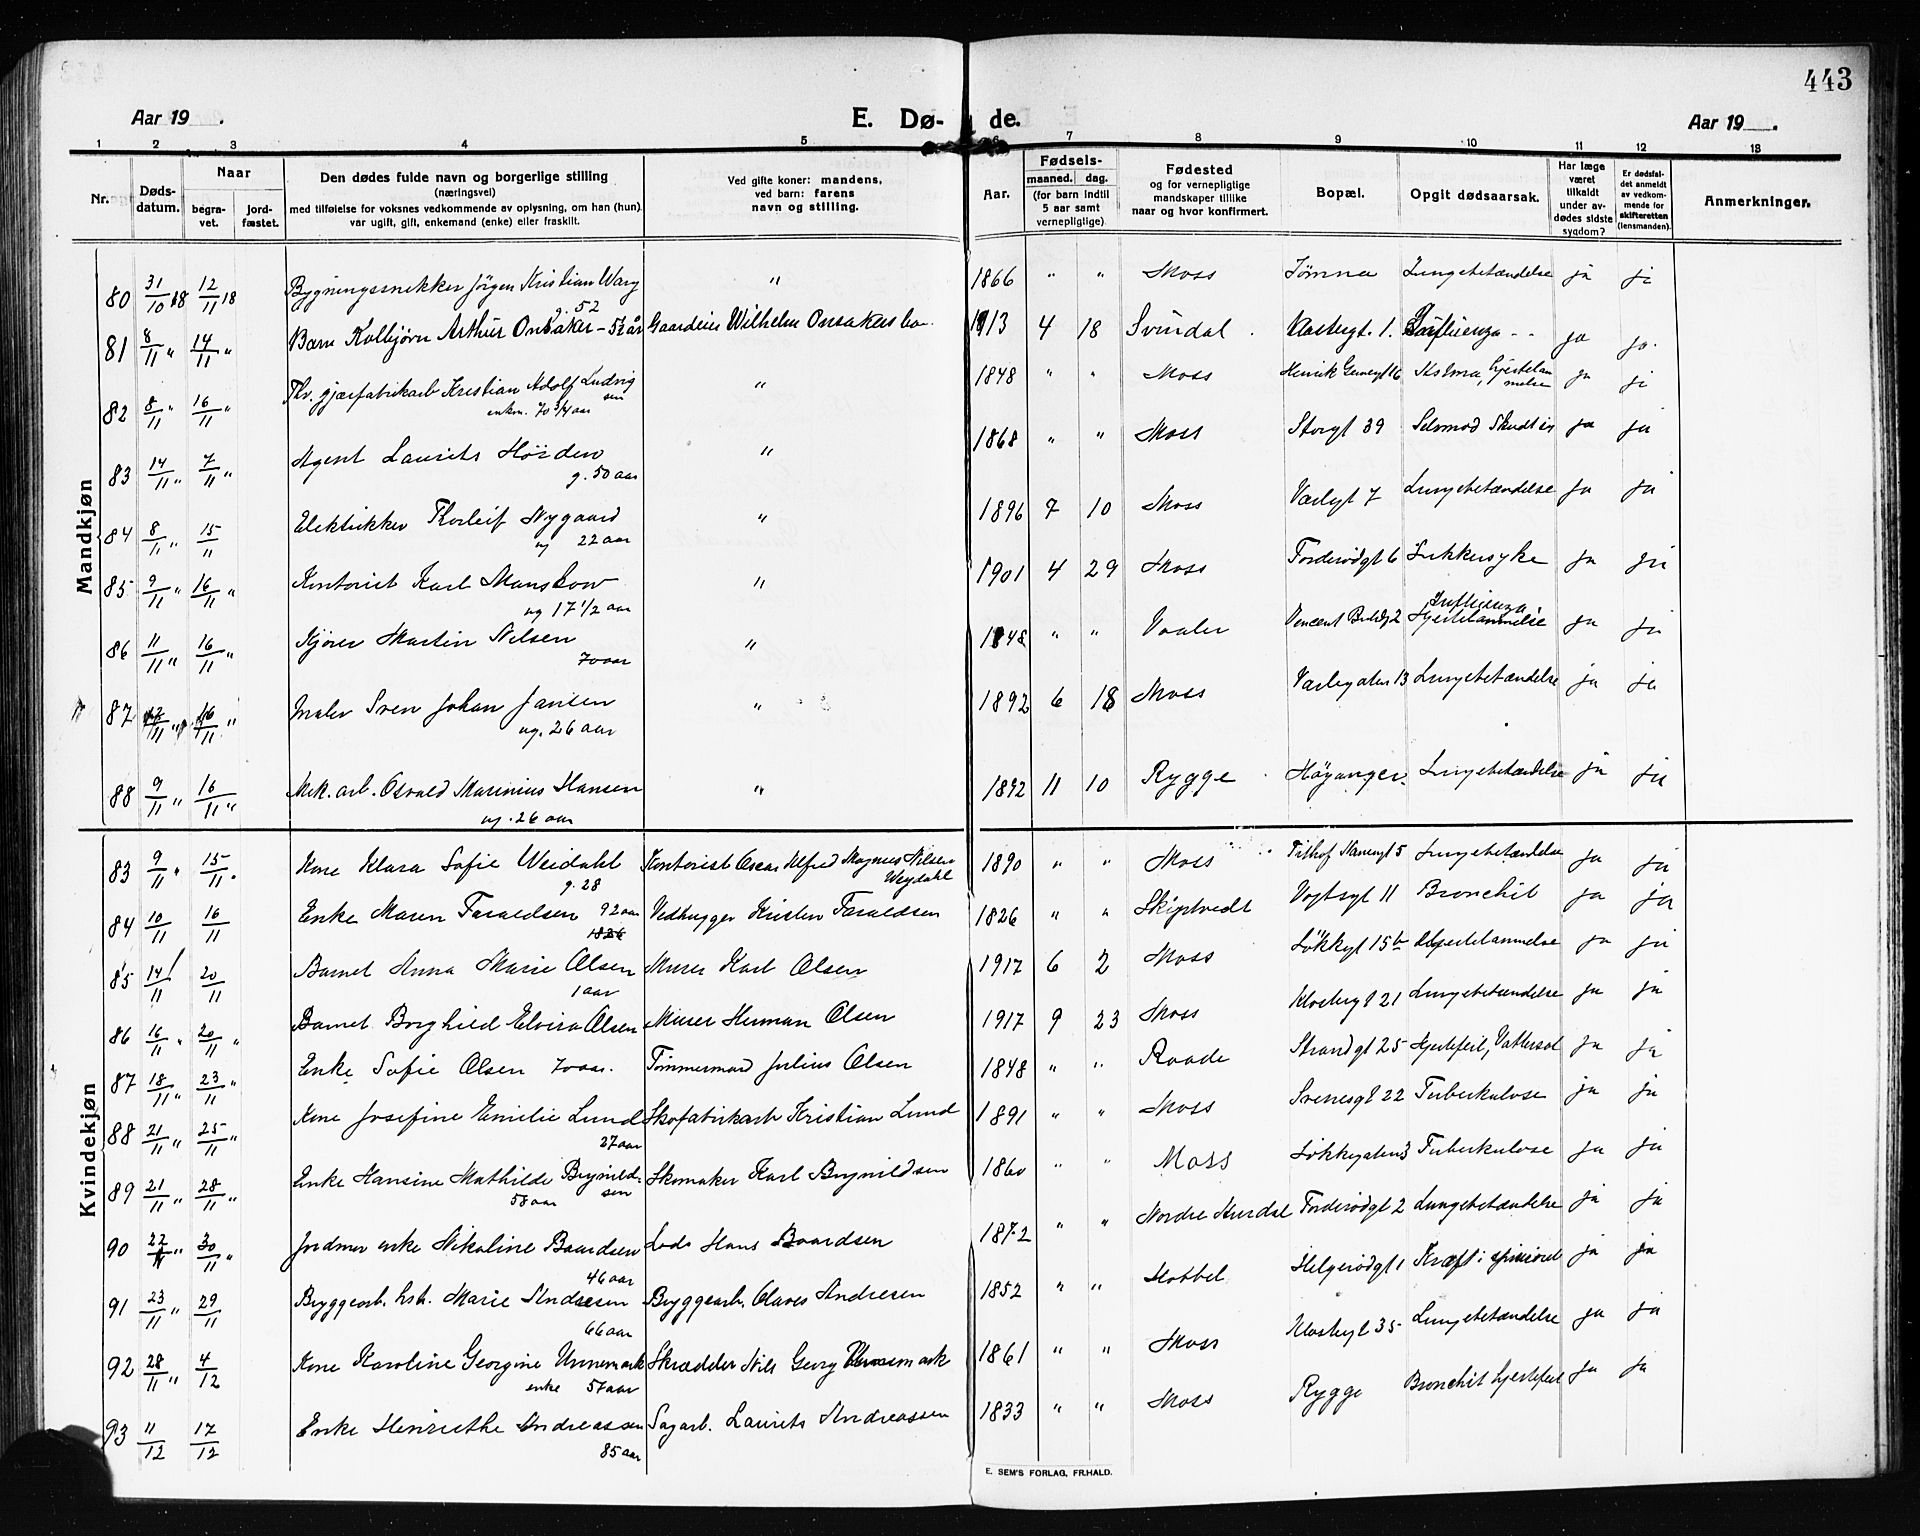 443
Aar 19 .
E. Dø- de.
Aar 19 .
1 2 3 4 5 6 7 8 9 10 11 12 13
Nr. Døds-datum. Naar begra-vet. jord-fæstet. Den dødes fulde navn og borgerlige stilling (næringsvei) med tilføielse for voksnes vedkommende av oplysning, om han (hun) var ugift, gift, enkemand (enke) eller fraskilt. Ved gifte koner: mandens, ved barn: farens navn og stilling. Aar. Fødsels- maaned. dag. (for barn indtil 5 aar samt vernepligtige) Fødested og for vernepligtige mandskaper tillike naar og hvor konfirmert. Bopæl. Opgit dødsaarsak. Har læge været tilkaldt under av-dødes sidste sygdom? Er dødsfal-det anmeldt av vedkom-mende for skifteretten (lensmanden). Anmerkninger.
Mandkjøn
80 31/10 18 12/11 18 Bygningssnekker Jörgen Kristian Warg " 1866 " " Moss Jømna Lungebetændelse ja ja
g. 52
81 8/11 " 14/11 " Barn Kolbjørn Arthur Onsaker - 5½ år Gaardeier Wilhelm Onsaker 1913 4 18 Svindal . Klostergt. 1. Influenza - - ja ja.
82 8/11 " 16/11 " Fhv. gjærfabrikarb Kristian Adolf Ludvig " 1848 " " Moss Henrik Gernergt 16 Astma, hjertelam ja ja
sen melse
enkm. 70 3/4 aar
83 14/11 " 7/11 " Agent Laurits Hörden " 1868 " " Moss Storgt 39 Selvmord Skudt ja ja
g. 50 aar
84 8/11 " 15/11 Elektrikker Thorleif Nygaard " 1896 7 10 Moss Varlegt 7 Lungebetændelse ja ja
ug 22 aar
85 9/11 " 16/11 " Kontorist Karl Manskow " 1901 4 29 Moss Fordersødgt 6 Sukkersyke ja ja
ug 17 1/2 aar
86 11/11 " 16/11 " Kjører Martin Nilsen " 1848 " " Vaaler Vincent Buddgt 2 Influenza, Hjertelammelse ja ja
70 aar
87 16/11 " Maler Sven Johan Jansen " 1892 6 18 Moss Varlegaten 13 Lungebetændelse ja ja
ug. 26 aar
88 9/11 " 16/11 " Mek. arb. Osvald Marinius Hansen " 1892 11 10 Rygge . Høyanger. Lungebetændelse ja ja
ug. 26 aar
Kvindekjøn
83 9/11 " 15/11. Kone Klara Sofie Weidahl Kontorist Oscar Alfred Magnus Nilsen 1890 " " Moss Lungebetændelse ja ja
g. 28 Weydahl
84 10/11 16/11 Enke Maren Faraldsen 92 aar Vedhugger Kristen Faraldsen 1826 " " Skiptvedt Vogtsgt 11 Bronchit ja ja
1826
85 14/11 20/11 Barnet Anna Marie Olsen Murer Karl Olsen 1917 6 2 Moss Løkkegt 15b Hjertelammelse ja ja
1 aar
86 16/11 " 20/11 " Barnet Borghild Elvira Olsen Murer Herman Olsen 1917 9 23 Moss Klostergt 21 Lungebetændelse ja ja
87 18/11 " 23/11 " Enke Sofie Olsen 70 aar. Tømmermand Julius Olsen 1848 " " Raade Strandgt 25 Hjertefeil, Vattersot ja ja
88 21/11 " 25/11 " Kone Josefine Emilie Lund Skofabrikarb Kristian Lund 1891 " " Moss Svenesgt 22 Tuberkulose ja ja
27 aar
89 21/11 " 28/11 " Enke Hansine Mathilde Brynild- Skomaker Karl Brynildsen 1860 " " Moss Løkkegaten 3 Tuberkulose ja ja
sen
58 aar
90 22/11 " 30/11 " Jordmor enke Nikoline Baardsen Lods Hans Baardsen 1872 " " Nordre Hurdal Fordersødgt 2 Lungebetændelse ja ja
46 aar
91 23/11 " 29/11 Bryggearb. hst. Marie Andresen Bryggearb. Olaves Andresen 1852 " " Hobbel Helgerødgt 1 Kræft i spiserøret ja ja
66 aar
92 28/11 " 4/12 Kone Karoline Georgine Unnemark Skrædder Nils Georg Unnemark 1861 " " Moss Klostergt 35 Lungebetændelse ja ja
enke 57 aar
93 11/12 17/12 Enke Henriethe Andreassen Sagarb. Laurits Andreassen 1833 " " Moss Rygge Bronchit hjertefeil ja ja
85 aar
E. SEM'S FORLAG, FR.HALD.